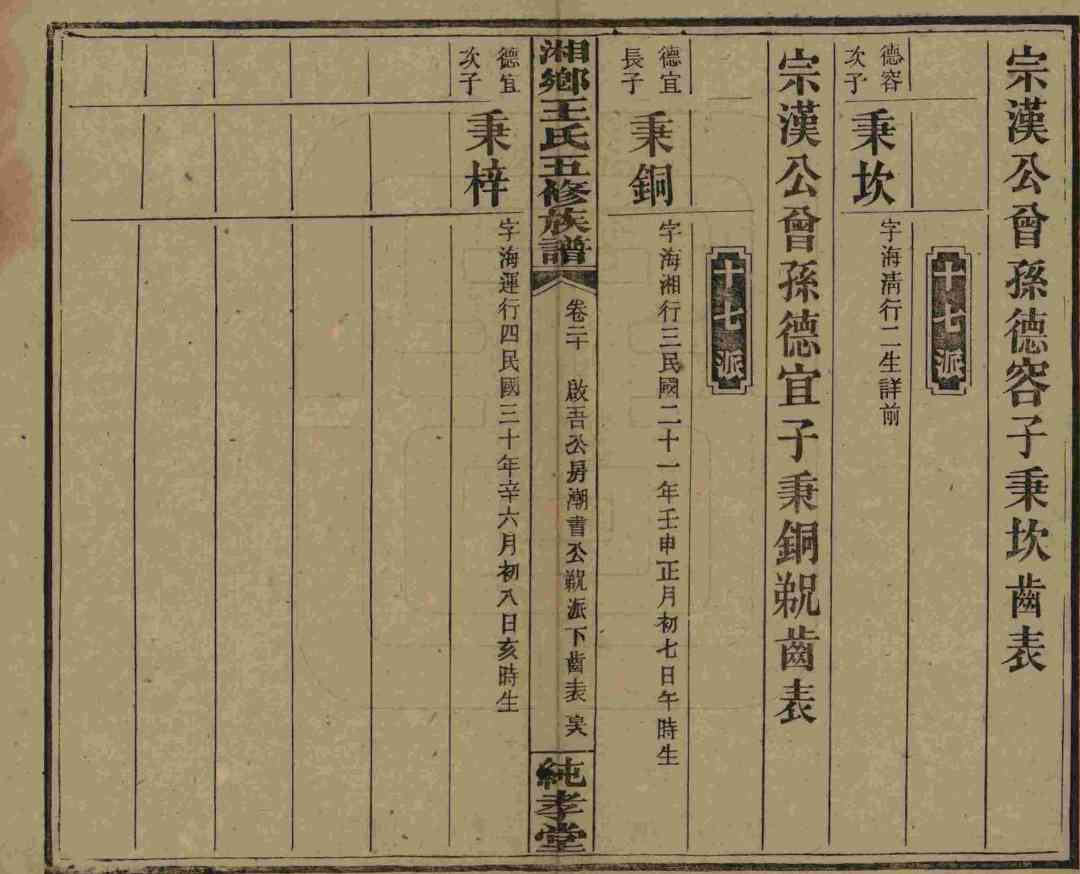 宗漢公曾孫德容子秉坎齒表
十七派
德容次子
秉坎
字海淸行二生詳前
宗漢公曾孫德宜子秉銅覣齒表
十七派
德宜長子
秉銅
字海湘行三民國二十一年壬申正月初七日午時生
湘鄉王氏五修族譜
卷二十
啟吾公房潮書公覣派下齒表
純孝堂
德宜次子
秉梓
字海運行四民國三十年辛六月初八日亥時生